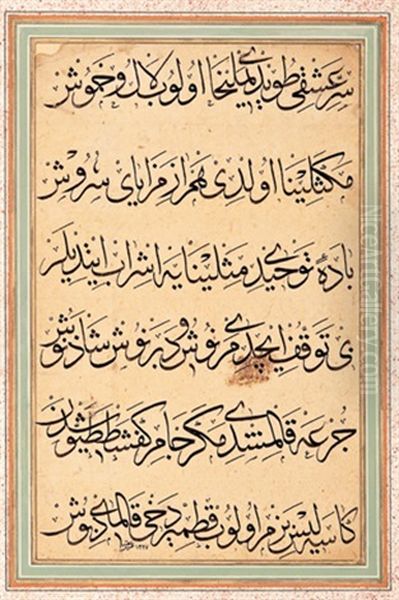 سر عشقی طویدی یملیخا اولوب لال و خموش
مكثلینا اولدی همراز مزایای سروش
بادهٔ توحیدی مثلینایه اشراب ایتدیلر
بی توقف ایچدی مرنوش و دبرنوش شاذنوش
جرعه قالمشدی مكر جام كفشططیوشدن
كاسه لیس بزم اولوب قطمیر دخی قالمادی بوش
NiceArtGallery.com